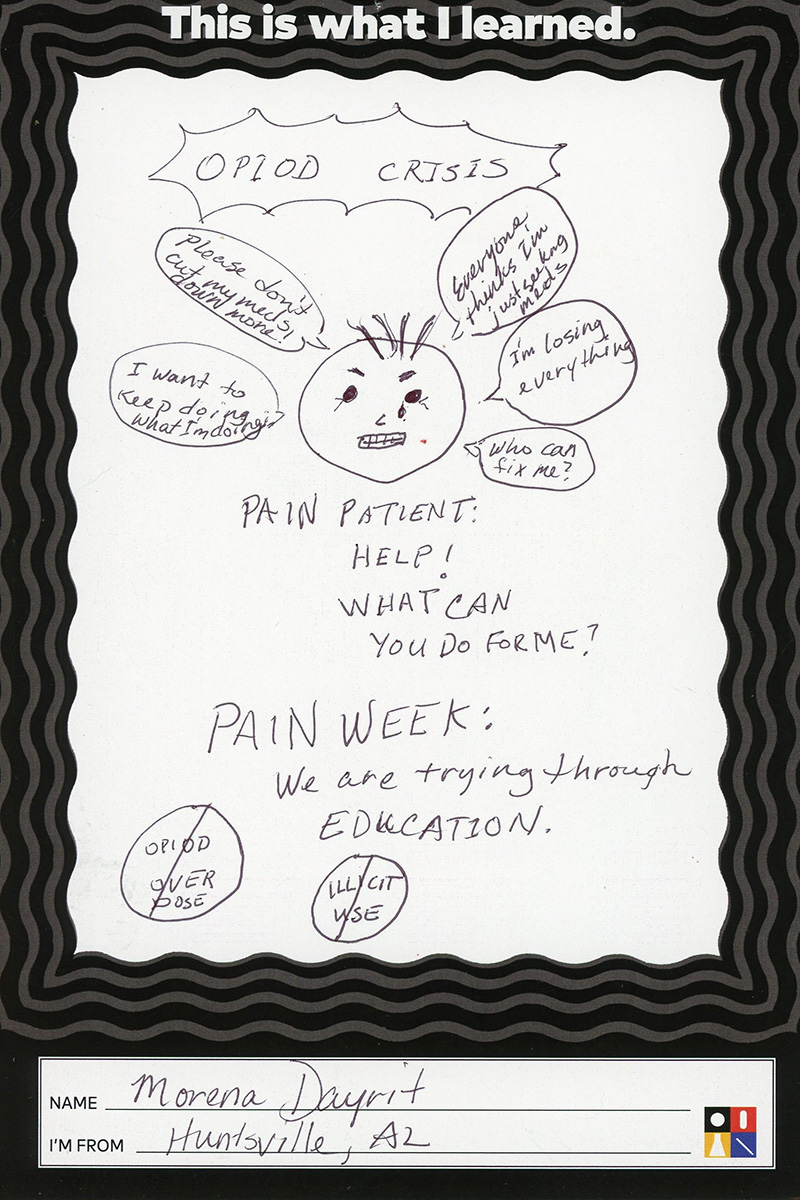 This is what I learned.
OPIOD CRISIS
Please don't
cut my meds
down more!
Everyone
thinks I'm
just seeking
meds
I want to
keep doing
what I'm doing!
I'm losing
everything
who can
fix me?
PAIN PATIENT:
HELP!
WHAT CAN
YOU DO FOR ME?
PAIN WEEK:
We are trying through
EDUCATION.
OPIOD
OVER
DOSE
ILLICIT
USE
NAME Morena Dayrit
I'M FROM Huntsville, AL